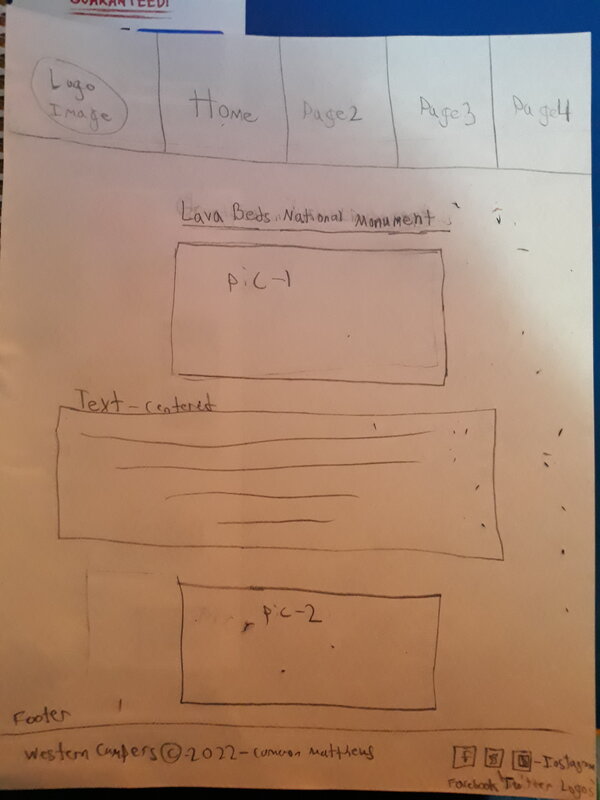 GUARANTEED!
Logo
Image
Home
Page2
Page3
Page4
Lava Beds National Monument
pic-1
Text-centered
pic-2
Footer
Western Campers © 2022-
f
-Instagram
Facebook Twitter Logos